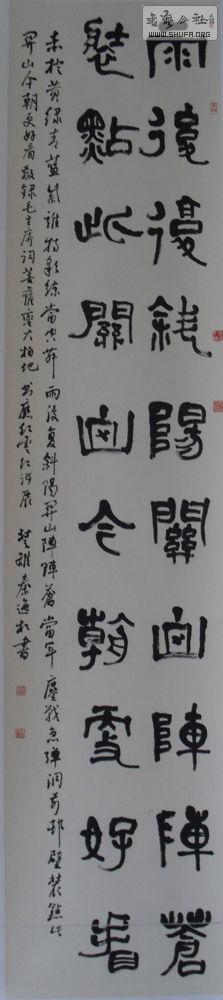 書藝公社
WWW.SHUFA.ORG
雨後復斜陽關山陣陣蒼
裝點此關山今朝更好看
赤橙黄绿青藍紫誰持彩練當空舞雨後复斜陽關山陣陣蒼當年鏖戰急彈洞前村壁裝點此
關山今朝更好看敬録毛主席詞菩薩蠻大柏地 楚雄秦逸松書